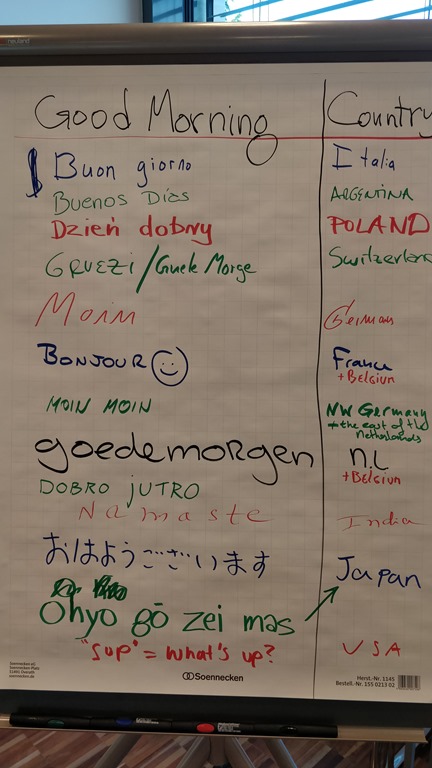 neuland
Good Morning Country
Buon giorno Italia
Buenos Días ARGENTINA
Dzień dobry POLAND
GRUEZI / Guete Morge Switzerland
Moin German
BONJOUR France
+ Belgium
MOIN MOIN NW Germany
+ the east of the
Netherlands
goedemorgen n.L
+ Belgium
DOBRO JUTRO
Namaste India
おはようございます Japan
Ohyo gō zei mas
"sup" = what's up? USA
Soennecken eG
Soennecken-Platz
51491 Overath
soennecken.de
Soennecken
Herst.-Nr. 1145
Bestell.-Nr. 155 0213 02